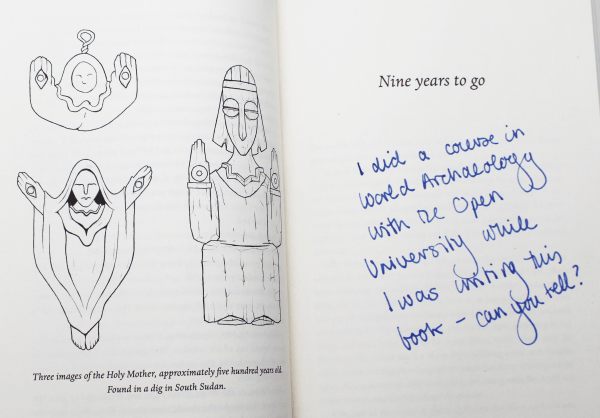 Three images of the Holy Mother, approximately five hundred years old.
Found in a dig in South Sudan.
Nine years to go
I did a course in
World Archaeology
with the Open
University while
I was writing this
book - can you tell?